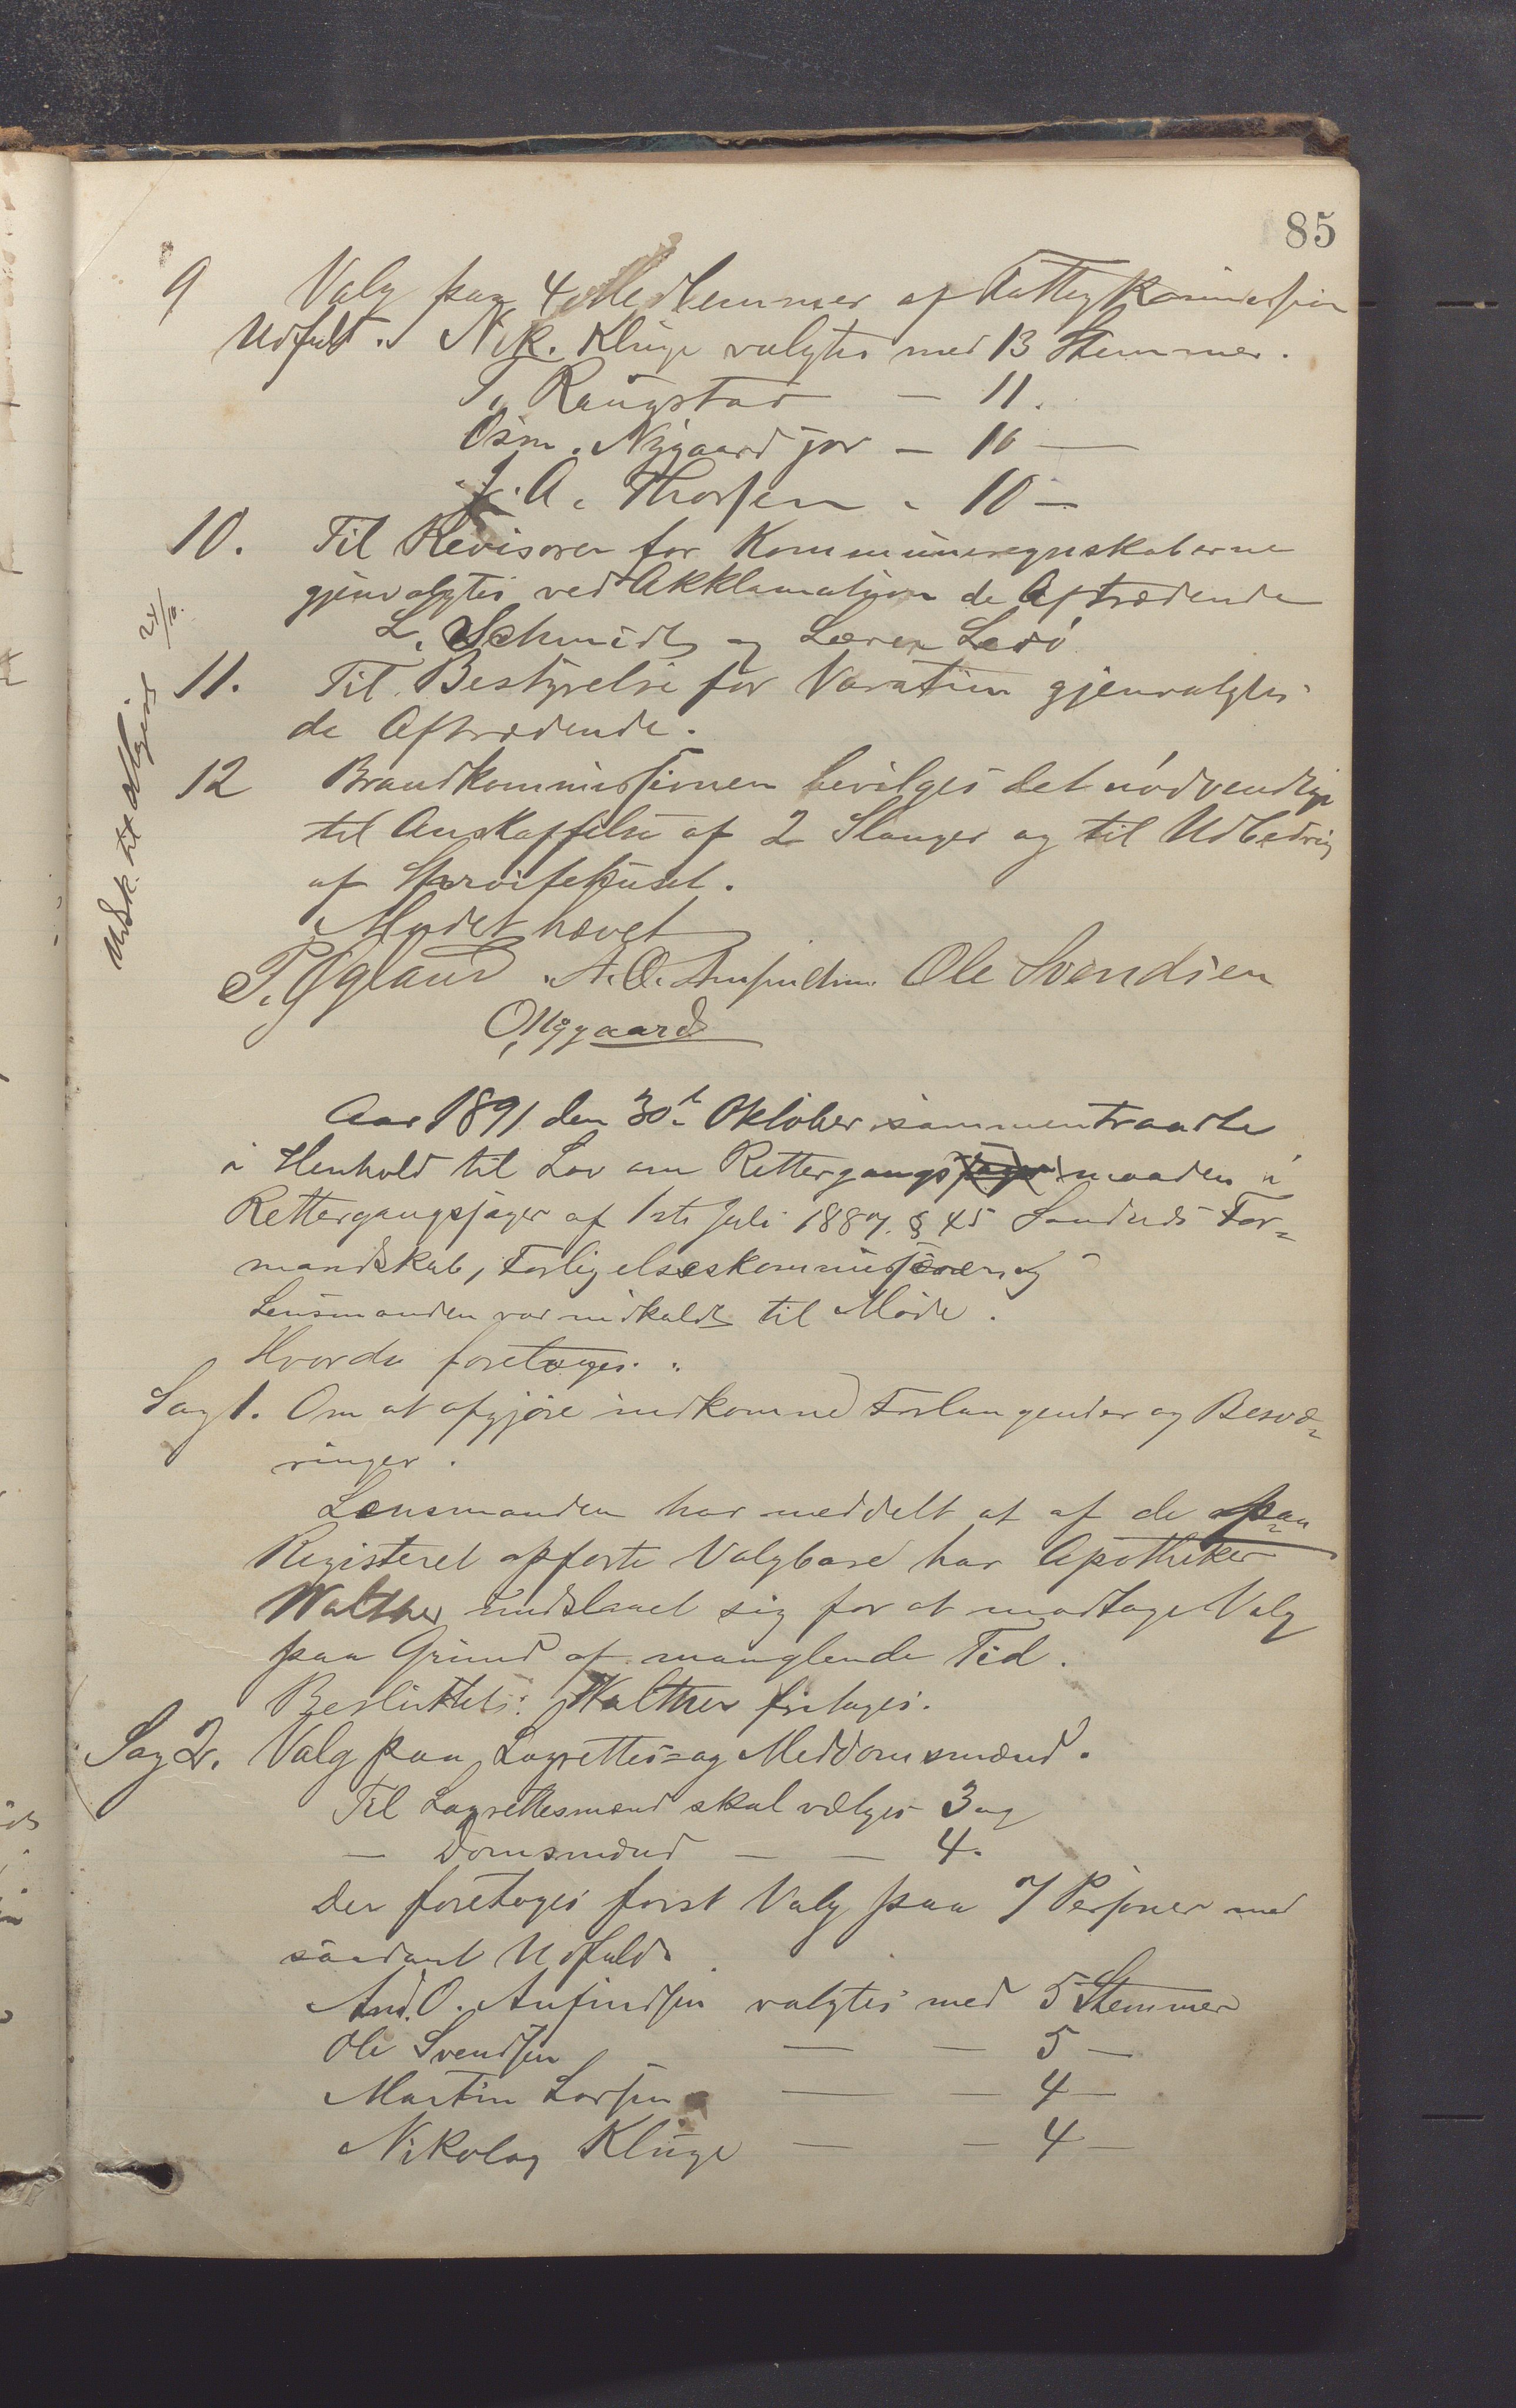 85
9 Valg paa 4 Medlemmer af Fattigkommission
Udfald. Nik. Kluge valgtes med 13 Stemmer.
T. Raugstad — 11.
Osm. Nygaard jor — 10 —
J. A. Thorsen - 10 —
10. Til Revisorer for Kommuneregnskaberne
gjenvalgtes ved Akklamation de Aftrædende
L. Schmidt og Lærer Ledö
11. Til Bestyrelse for Varatun gjenvalgtes
de Aftrædende.
12 Brandkommissionen bevilges det nödvendige
til Anskaffelse af 2 Slanger og til Udbedring
af Spröitehuset.
Mödet hævet
Udsk. til 24/10.
T. Ogland A. O. Anfindsen Ole Svendsen
O. Nygaard
Aar 1891 den 30te Oktober sammentraadte
i Henhold til Lov om Rettergangsmaaden i
Rettergangssager af 1ste Juli 1887 § 45 Sandnæs For-
mandskab, Forligelseskommissærer og
Lensmanden var indkaldt til Møde.
Hvorda foretoges:
Sag 1. Om at afgjøre indkomne Forlangender og Besvæ-
ringer.
Lensmanden har meddelt at af de paa
Registeret opførte Valgbare har Apotheker
Walther undslaaet sig for at modtage Valg
paa Grund af manglende Tid.
Besluttet: Walther fritages.
Sag 2. Valg paa Lagrettes- og Meddomsmænd.
Til Lagrettesmænd skal vælges 3 og
— Domsmænd — — 4.
Der foretoges først Valg paa 7 Personer med
saadant Udfald
And. O. Anfindsen valgtes med 5 Stemmer
Ole Svendsen — — 5 —
Martin Larsen — — 4 —
Nikolay Kluge — — 4 —